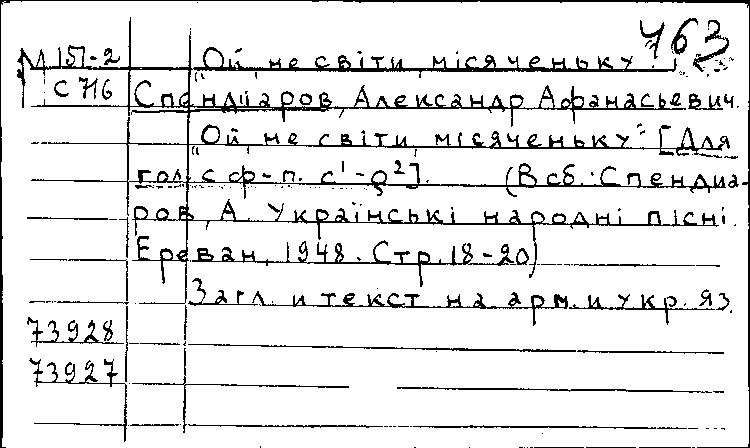 763
М 151-2 "Ой, не світи, місяченьку".
С 716 Спендиаров, Александр Афанасьевич.
"Ой, не світи, місяченьку" [Для
гол. с ф-п. c¹-g²]. (В сб.: Спендиа-
ров, А. Українські народні пісні.
Ереван, 1948. Стр. 18-20)
Загл. и текст на арм. и укр. яз.
73928
73927